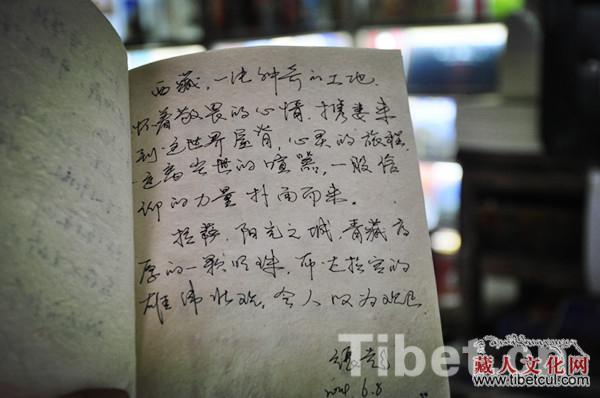 西藏,一片神奇的土地.
怀着敬畏的心情,携妻来
到这世界屋脊,心灵的旅程
远离尘世的喧嚣,一股信
仰的力量扑面而来。
拉萨,阳光之城,青藏高
原的一颗明珠,布达拉宫的
雄伟壮观,令人叹为观止
2014.6.8
Tibet.cn
藏人文化网
www.tibetcul.com